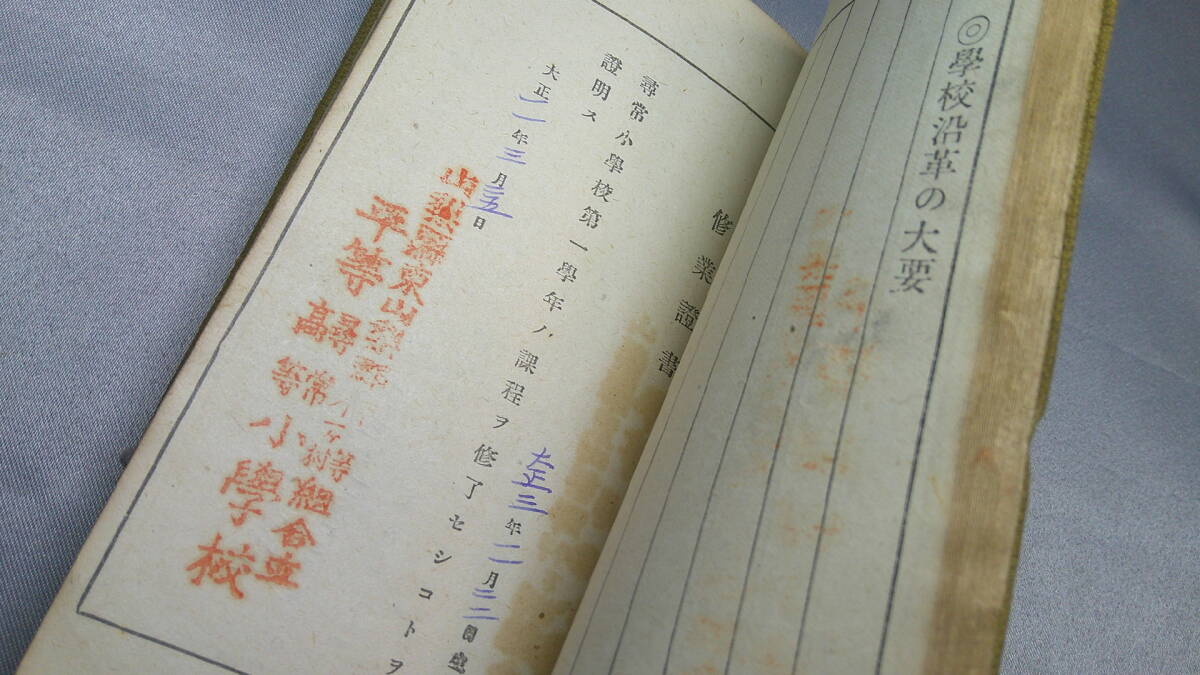 ◎學校沿革の大要
修業證書
大正三年二月二二日生
尋常小學校第一學年ノ課程ヲ修了セシコトヲ
證明ス
大正二年三月二五日
山梨縣東山梨郡
組合立
平等尋常
高等小學校